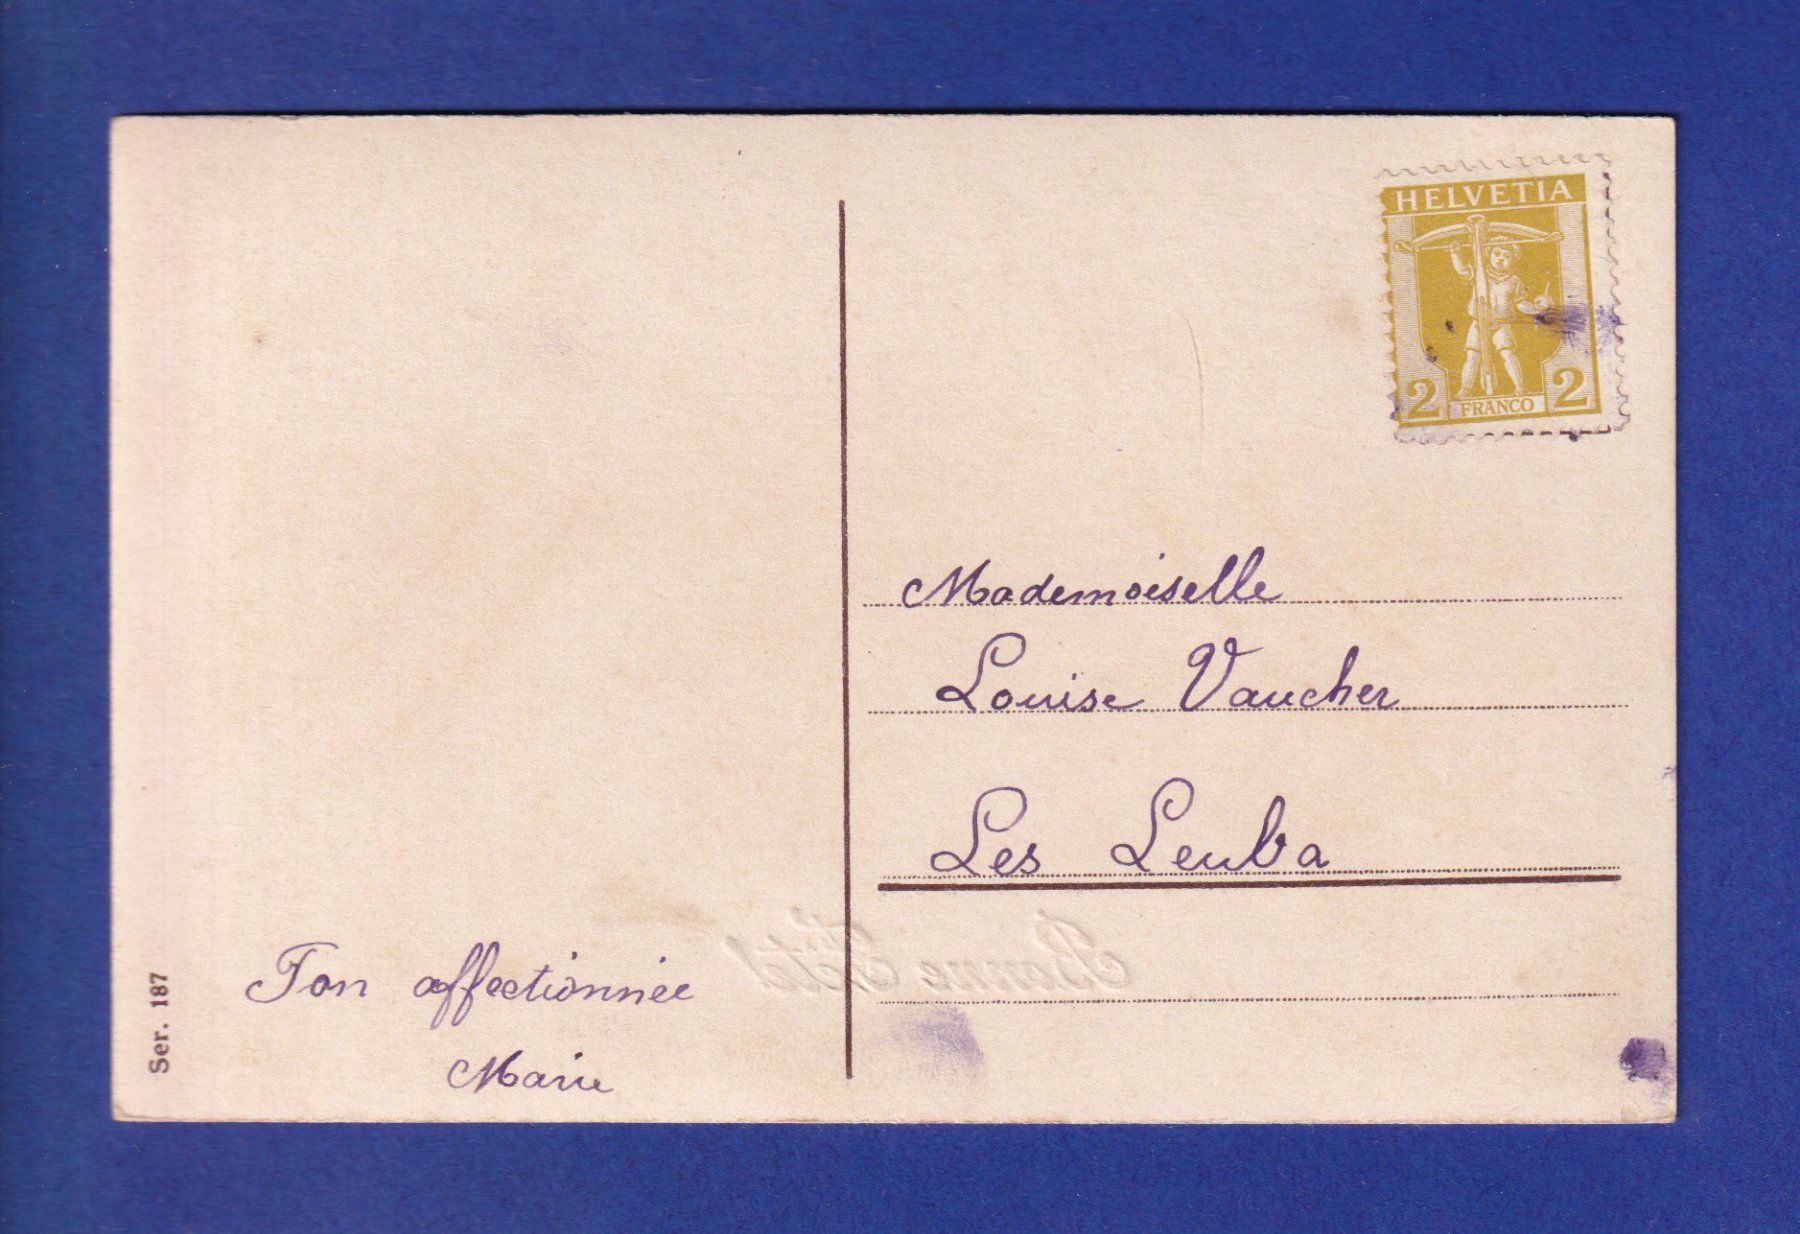 HELVETIA
2 FRANCO 2
Mademoiselle
Louise Vaucher
Les Leuba
Bonne Fête!
Ton affectionnée
Marie
Ser. 187